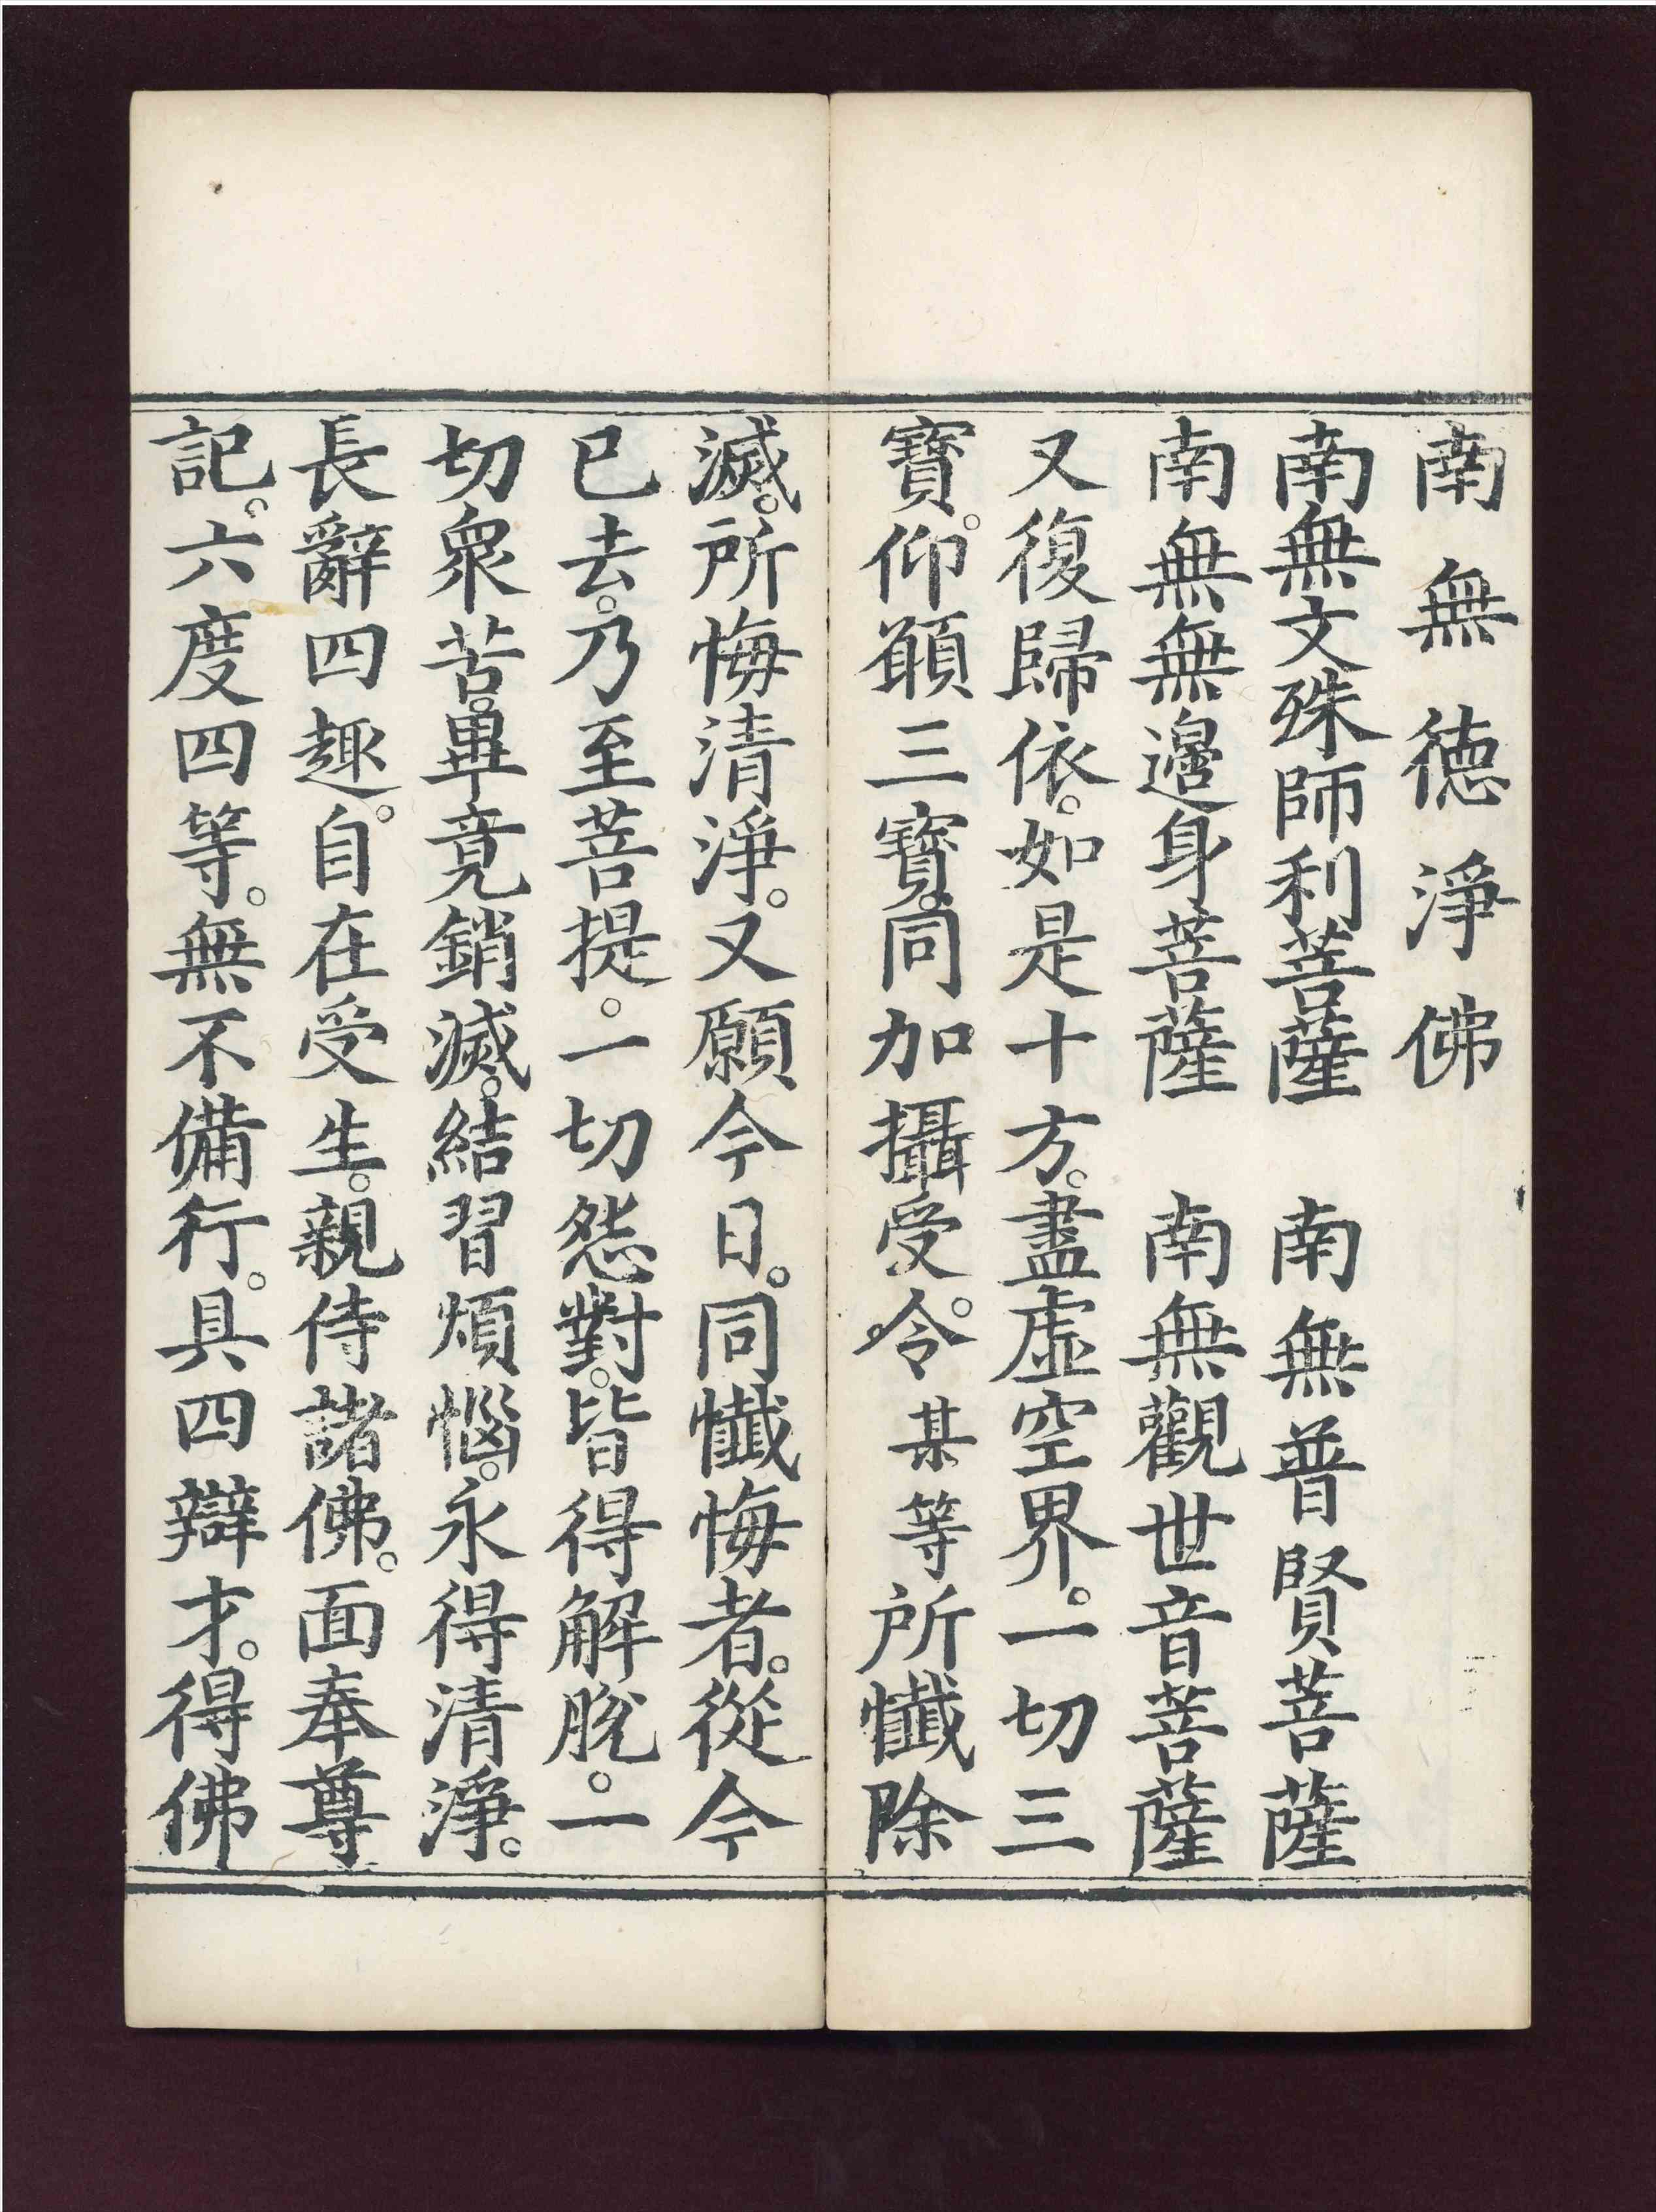 南無德淨佛
南無文殊師利菩薩　南無普賢菩薩
南無無邊身菩薩　南無觀世音菩薩
又復歸依。如是十方。盡虛空界。一切三
寶。仰願三寶。同加攝受。令某等所懺除
滅。所悔清淨。又願今日。同懺悔者。從今
已去。乃至菩提。一切怨對。皆得解脫。一
切衆苦。畢竟銷滅。結習煩惱。永得清淨。
長辭四趣。自在受生。親侍諸佛。面奉尊
記。六度四等。無不備行。具四辯才。得佛